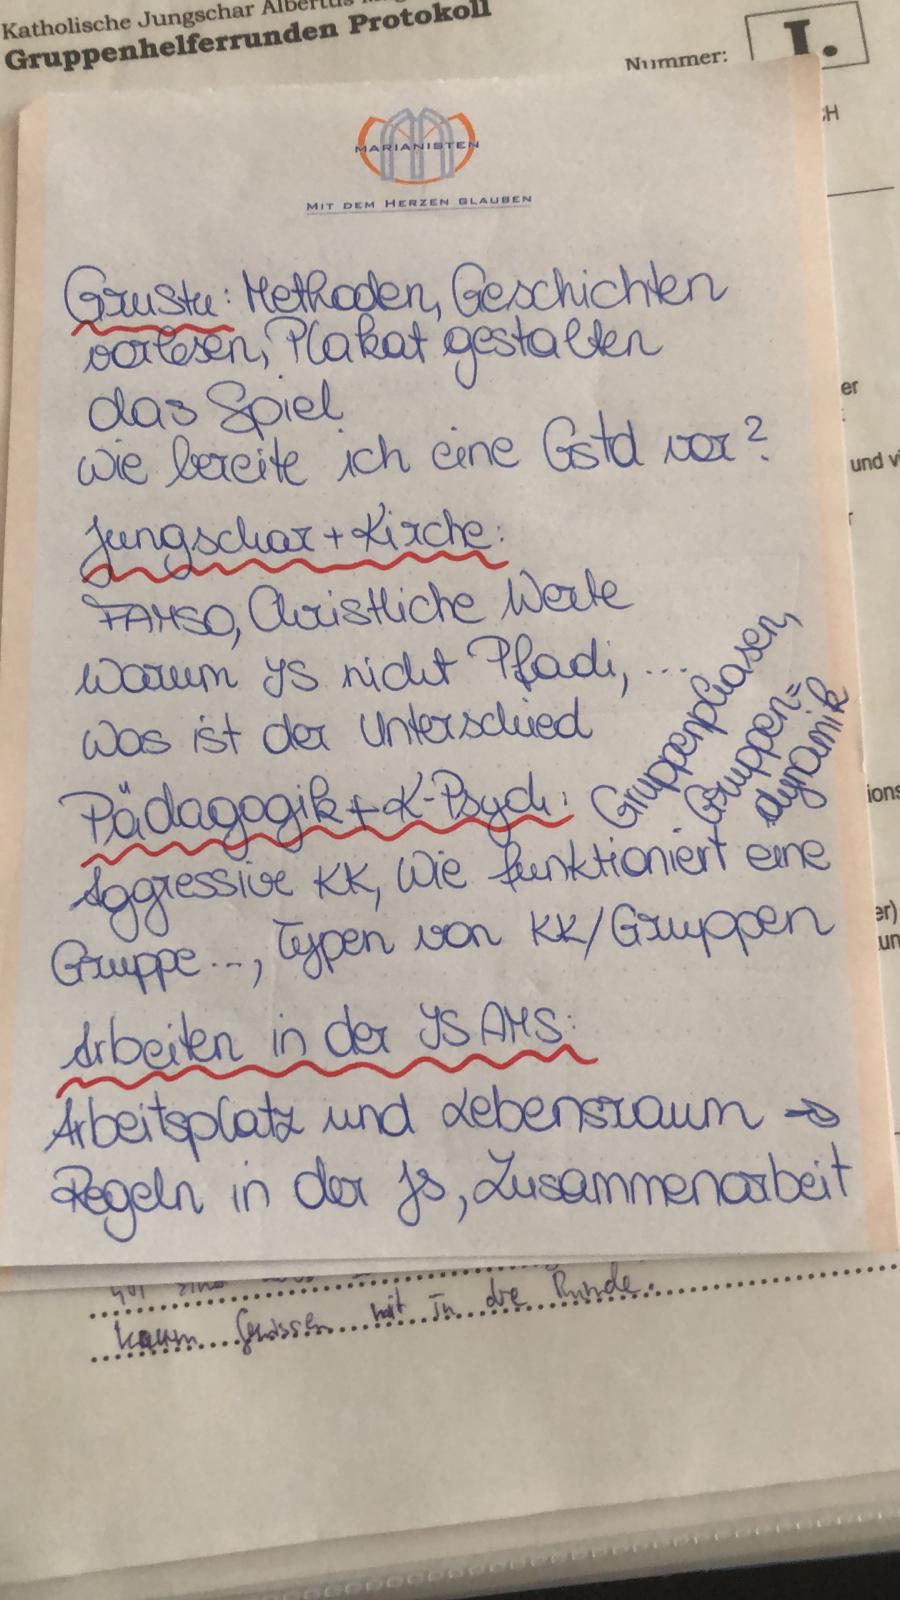 Katholische Jungschar Albertus
Gruppenhelferrunden Protokoll
Nummer:
I.
MARIANISTEN
MIT DEM HERZEN GLAUBEN
Grustu: Methoden, Geschichten
vorlesen, Plakat gestalten
das Spiel
wie bereite ich eine Gstd vor?
Jungschar + Kirche:
FAMSO, Christliche Werte
Warum JS nicht Pfadi, ...
Was ist der Unterschied
Pädagogik + K-Psych:
Gruppenphasen,
Gruppen=
dynamik
Aggressive KK, Wie funktioniert eine
Gruppe..., Typen von KK/Gruppen
Arbeiten in der JS AMS:
Arbeitsplatz und Lebensraum →
Regeln in der JS, Zusammenarbeit
kaum mit in die Runde.